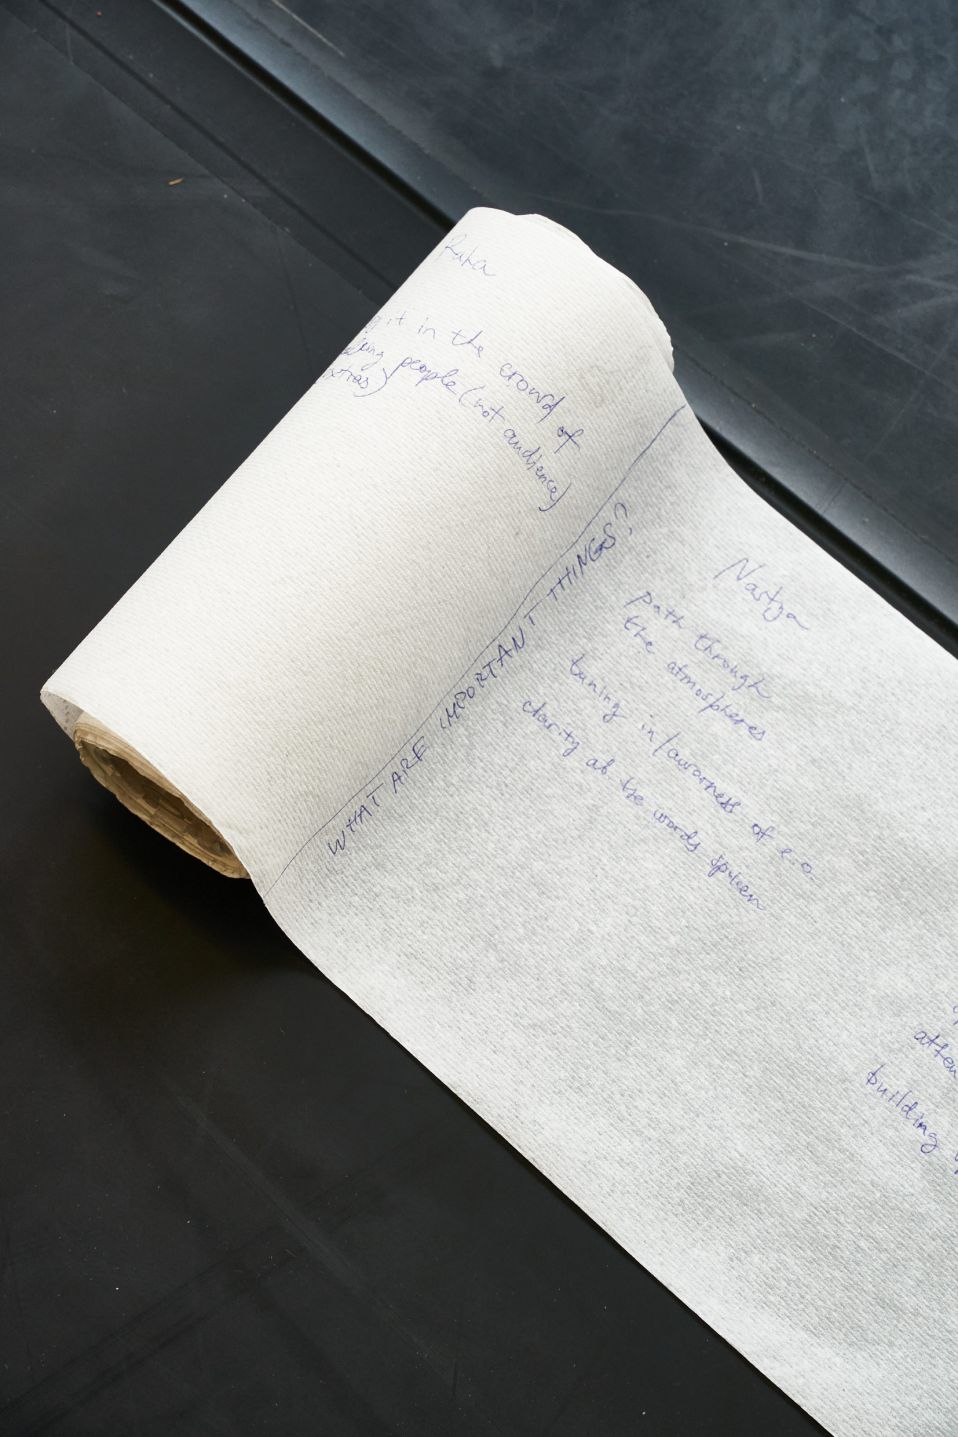 it in the crowd of
people (not audience)
WHAT ARE IMPORTANT THINGS?
Nastya
path through
the atmospheres
tuning in/awarness of e.o.
clarity at the words spoken
building